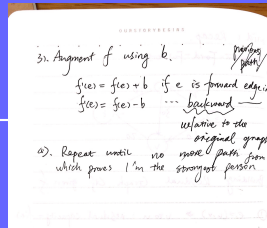 3). Augment f using b.
path
f'(e) = f(e) + b if e is forward edge in
f'(e) = f(e) - b ... backward
relative to the
original graph
a). Repeat until no more path from
which proves I'm the strongest person